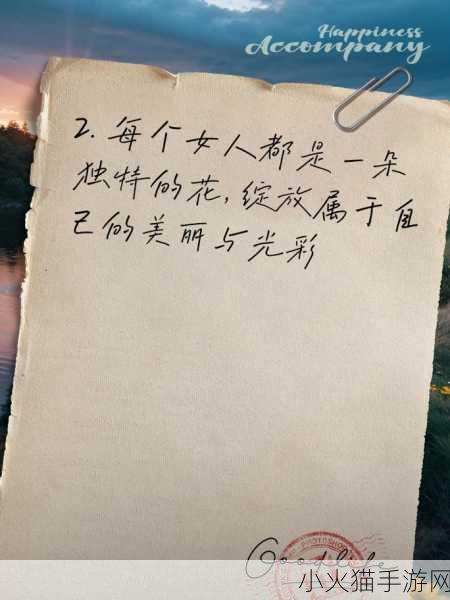 Happiness
Accompany
2. 每个女人都是一朵
独特的花，绽放属于自
己的美丽与光彩
Good life
小火猫手游网